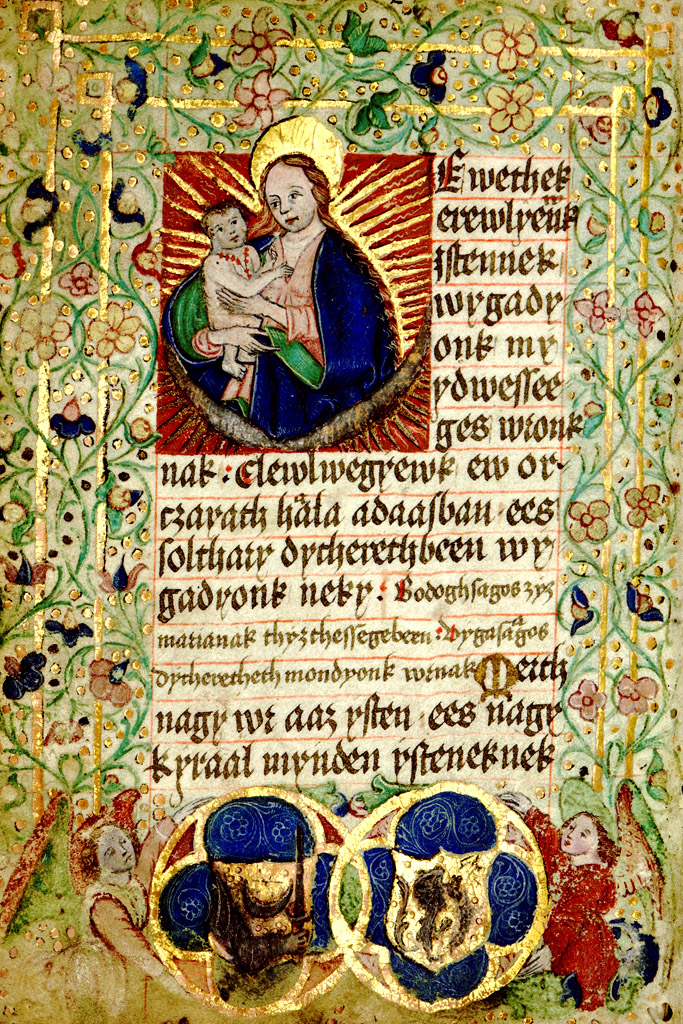 Ewethek
erewlyēnk
jstennek
wygady
onk my
ydwessee
ges wronk
nak : elewlwegyewk ew or-
czayath hála adaasban ees
solthary dycherethbeen wy
gadyonk neky : Bodoghsagos zyz
marianak thyzthessegebern : vygaságos
dycheretheth mondyonk wrnak Merth
nagy wr aaz ysten ees nagy
kyraal mynden ysteneknek